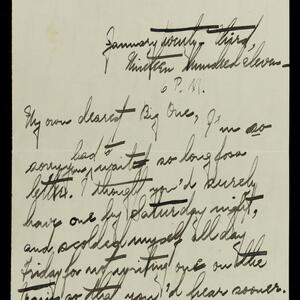 January twenty-third,
Nineteen hundred eleven—
6 P.M.
My own dearest Big One, I'm so
sorry you had to wait so long for a
letter. I thought you'd surely
have one by Saturday night,
and scolded myself all day
Friday for not writing one on the
train so that you'd hear sooner.